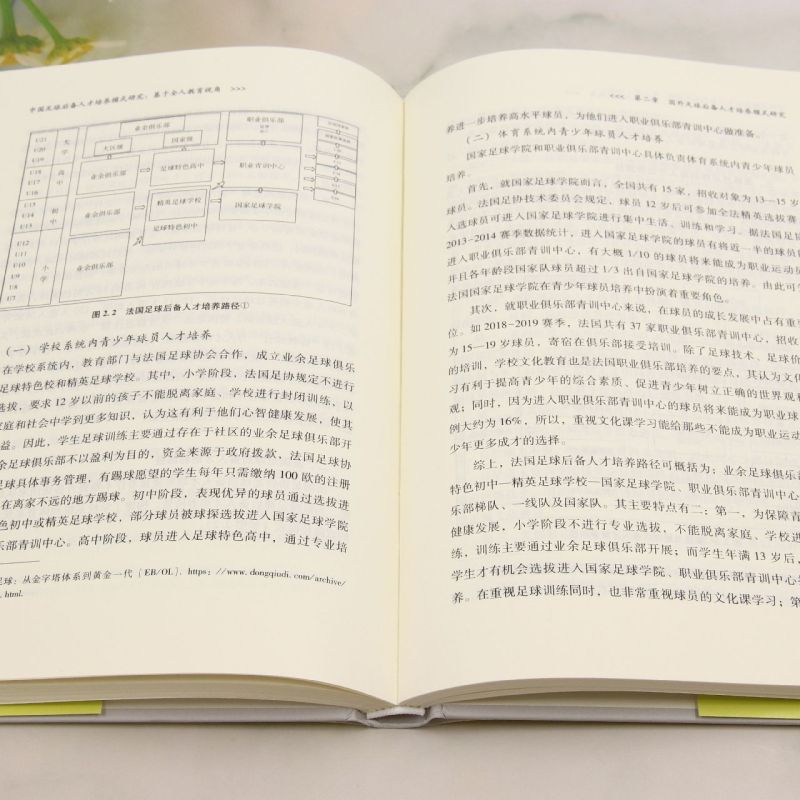 中国足球后备人才培养模式研究：基于全人教育视角 >>>
U21
U20
U19
U18
U17
U16
U15
U14
U13
U12
U11
U10
U9
U8
U7
大学
高中
初中
小学
业余俱乐部
大区级
国家级
业余俱乐部
足球特色高中
业余俱乐部
精英足球学校
足球特色初中
业余俱乐部
职业俱乐部
职业青训中心
国家足球学院
图 2.2 法国足球后备人才培养路径①
（一）学校系统内青少年球员人才培养
在学校系统内，教育部门与法国足球协会合作，成立业余足球俱乐
足球特色校和精英足球学校。其中，小学阶段，法国足协规定不进行
选拔，要求 12 岁以前的孩子不能脱离家庭、学校进行封闭训练，以
家庭和社会中学到更多知识，认为这有利于他们心智健康发展，使其
益。因此，学生足球训练主要通过存在于社区的业余足球俱乐部开
余足球俱乐部不以盈利为目的，资金来源于政府拨款，法国足球协
足球具体事务管理，有踢球愿望的学生每年只需缴纳 100 欧的注册
在离家不远的地方踢球。初中阶段，表现优异的球员通过选拔进
色初中或精英足球学校，部分球员被球探选拔进入国家足球学院
乐部青训中心。高中阶段，球员进入足球特色高中，通过专业培
足球：从金字塔体系到黄金一代［EB/OL］. https：//www.dongqiudi.com/archive/
.html.
<<< 第二章 国外足球后备人才培养模式研究
养进一步培养高水平球员，为他们进入职业俱乐部青训中心做准备。
（二）体育系统内青少年球员人才培养
国家足球学院和职业俱乐部青训中心具体负责体育系统内青少年球员
培养。
首先，就国家足球学院而言，全国共有 15 家，招收对象为 13—15 岁
球员。法国足协技术委员会规定，球员 12 岁后可参加全法精英选拔赛
入选球员可进入国家足球学院进行集中生活、训练和学习。据法国足协
2013-2014 赛季数据统计，进入国家足球学院的球员有将近一半的球员
进入职业俱乐部青训中心，有大概 1/10 的球员将来能成为职业运动
并且各年龄段国家队球员超过 1/3 出自国家足球学院的培养。由此可
法国国家足球学院在青少年球员培养中扮演着重要角色。
其次，就职业俱乐部青训中心来说，在球员的成长发展中占有重
位。如 2018-2019 赛季，法国共有 37 家职业俱乐部青训中心，招收
为 15—19 岁球员，寄宿在俱乐部接受培训。除了足球技术、足球价
的培训，学校文化教育也是法国职业俱乐部培养的要点，其认为文化
习有利于提高青少年的综合素质、促进青少年树立正确的世界观和
观；同时，因为进入职业俱乐部青训中心的球员将来能成为职业球
例大约为 16%，所以，重视文化课学习能给那些不能成为职业运动
少年更多成才的选择。
综上，法国足球后备人才培养路径可概括为：业余足球俱乐部
特色初中—精英足球学校—国家足球学院、职业俱乐部青训中心
乐部梯队、一线队及国家队。其主要特点有二：第一，为保障青
健康发展，小学阶段不进行专业选拔，不能脱离家庭、学校进
练，训练主要通过业余足球俱乐部开展；而学生年满 13 岁后，
学生才有机会选拔进入国家足球学院、职业俱乐部青训中心
养。在重视足球训练同时，也非常重视球员的文化课学习；第